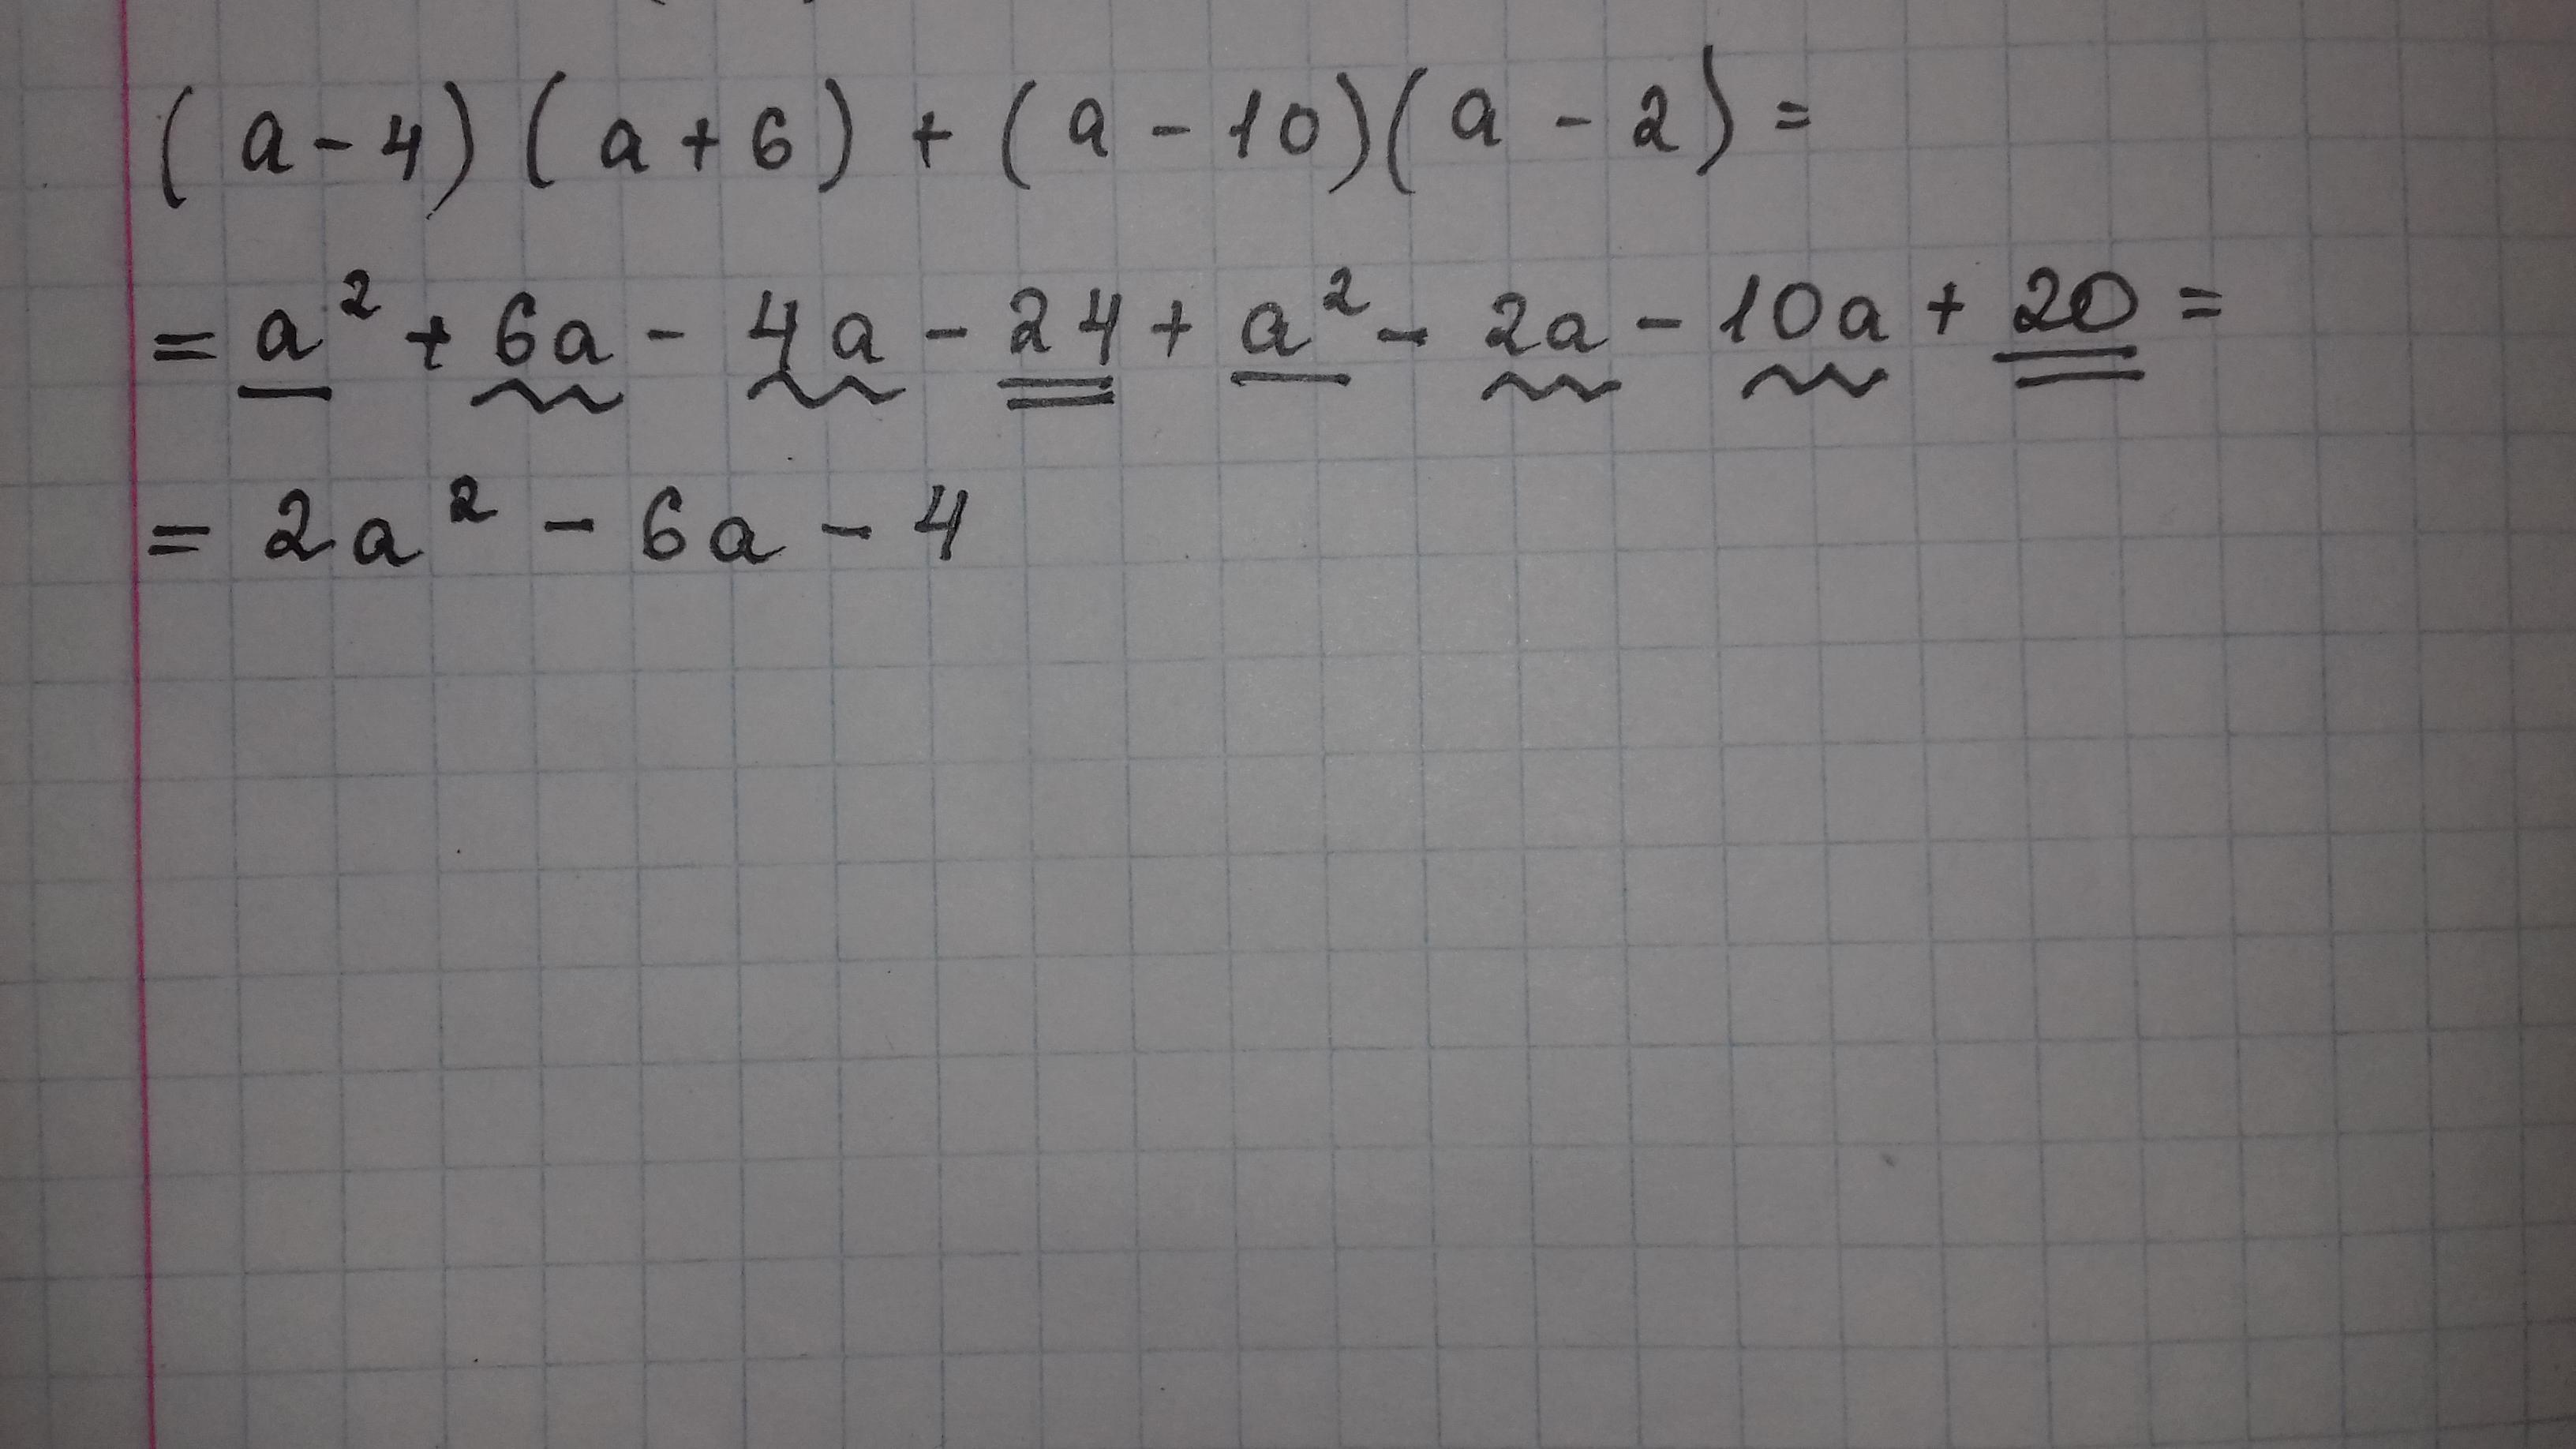 (a-4)(a+6)+(a-10)(a-2)=
=a²+6a-4a-24+a²-2a-10a+20=
=2a²-6a-4